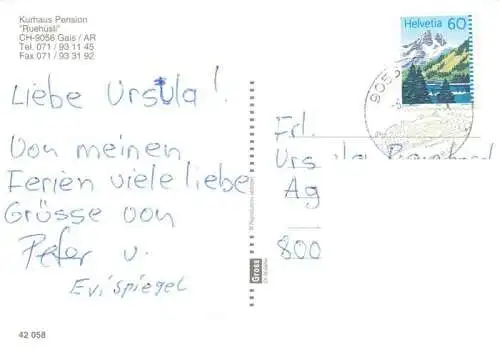 Kurhaus Pension
"Ruehüsli"
CH-9056 Gais / AR
Tel. 071 / 93 11 45
Fax 071 / 93 31 92
Helvetia 60
905
Liebe Ursula!
Von meinen
Ferien viele liebe
Grüsse von
Peter u.
Evi Spiegel
Frl.
Urs la
Ag
800
Gross
42 058